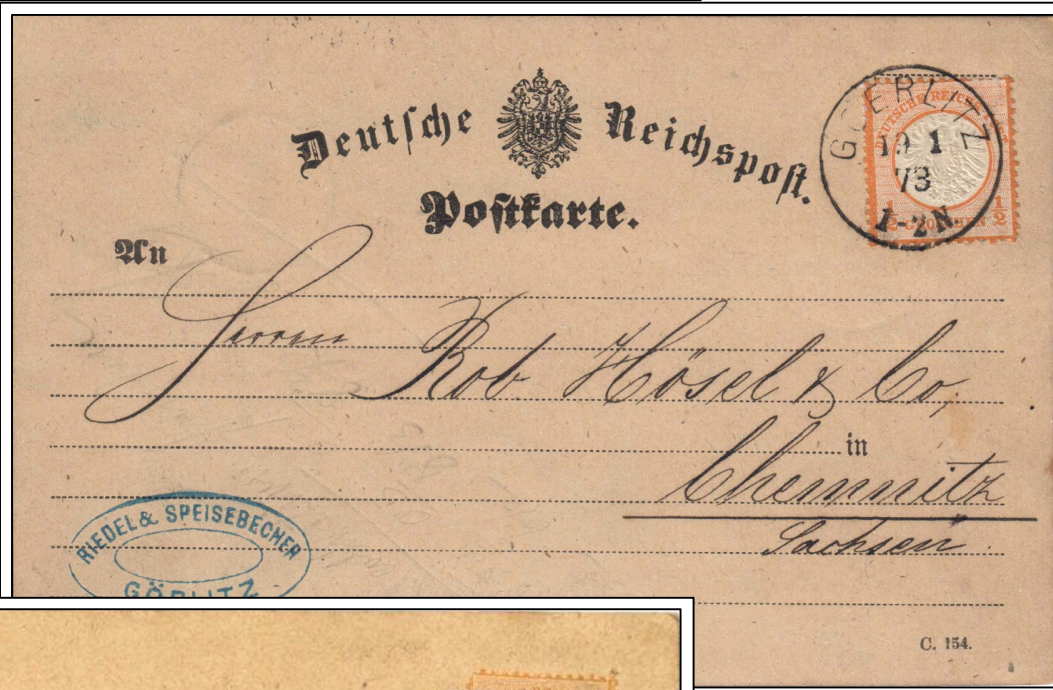 Deutsche Reichspost.
Postkarte.
GOERLITZ
19 1
73
1-2N.
DEUTSCHE REICHS
1/2 GROSCHEN 1/2
An
Herrn Rob Hösel & Co,
in
Chemnitz
Sachsen.
RIEDEL & SPEISEBECHER
GÖRLITZ
C. 154.